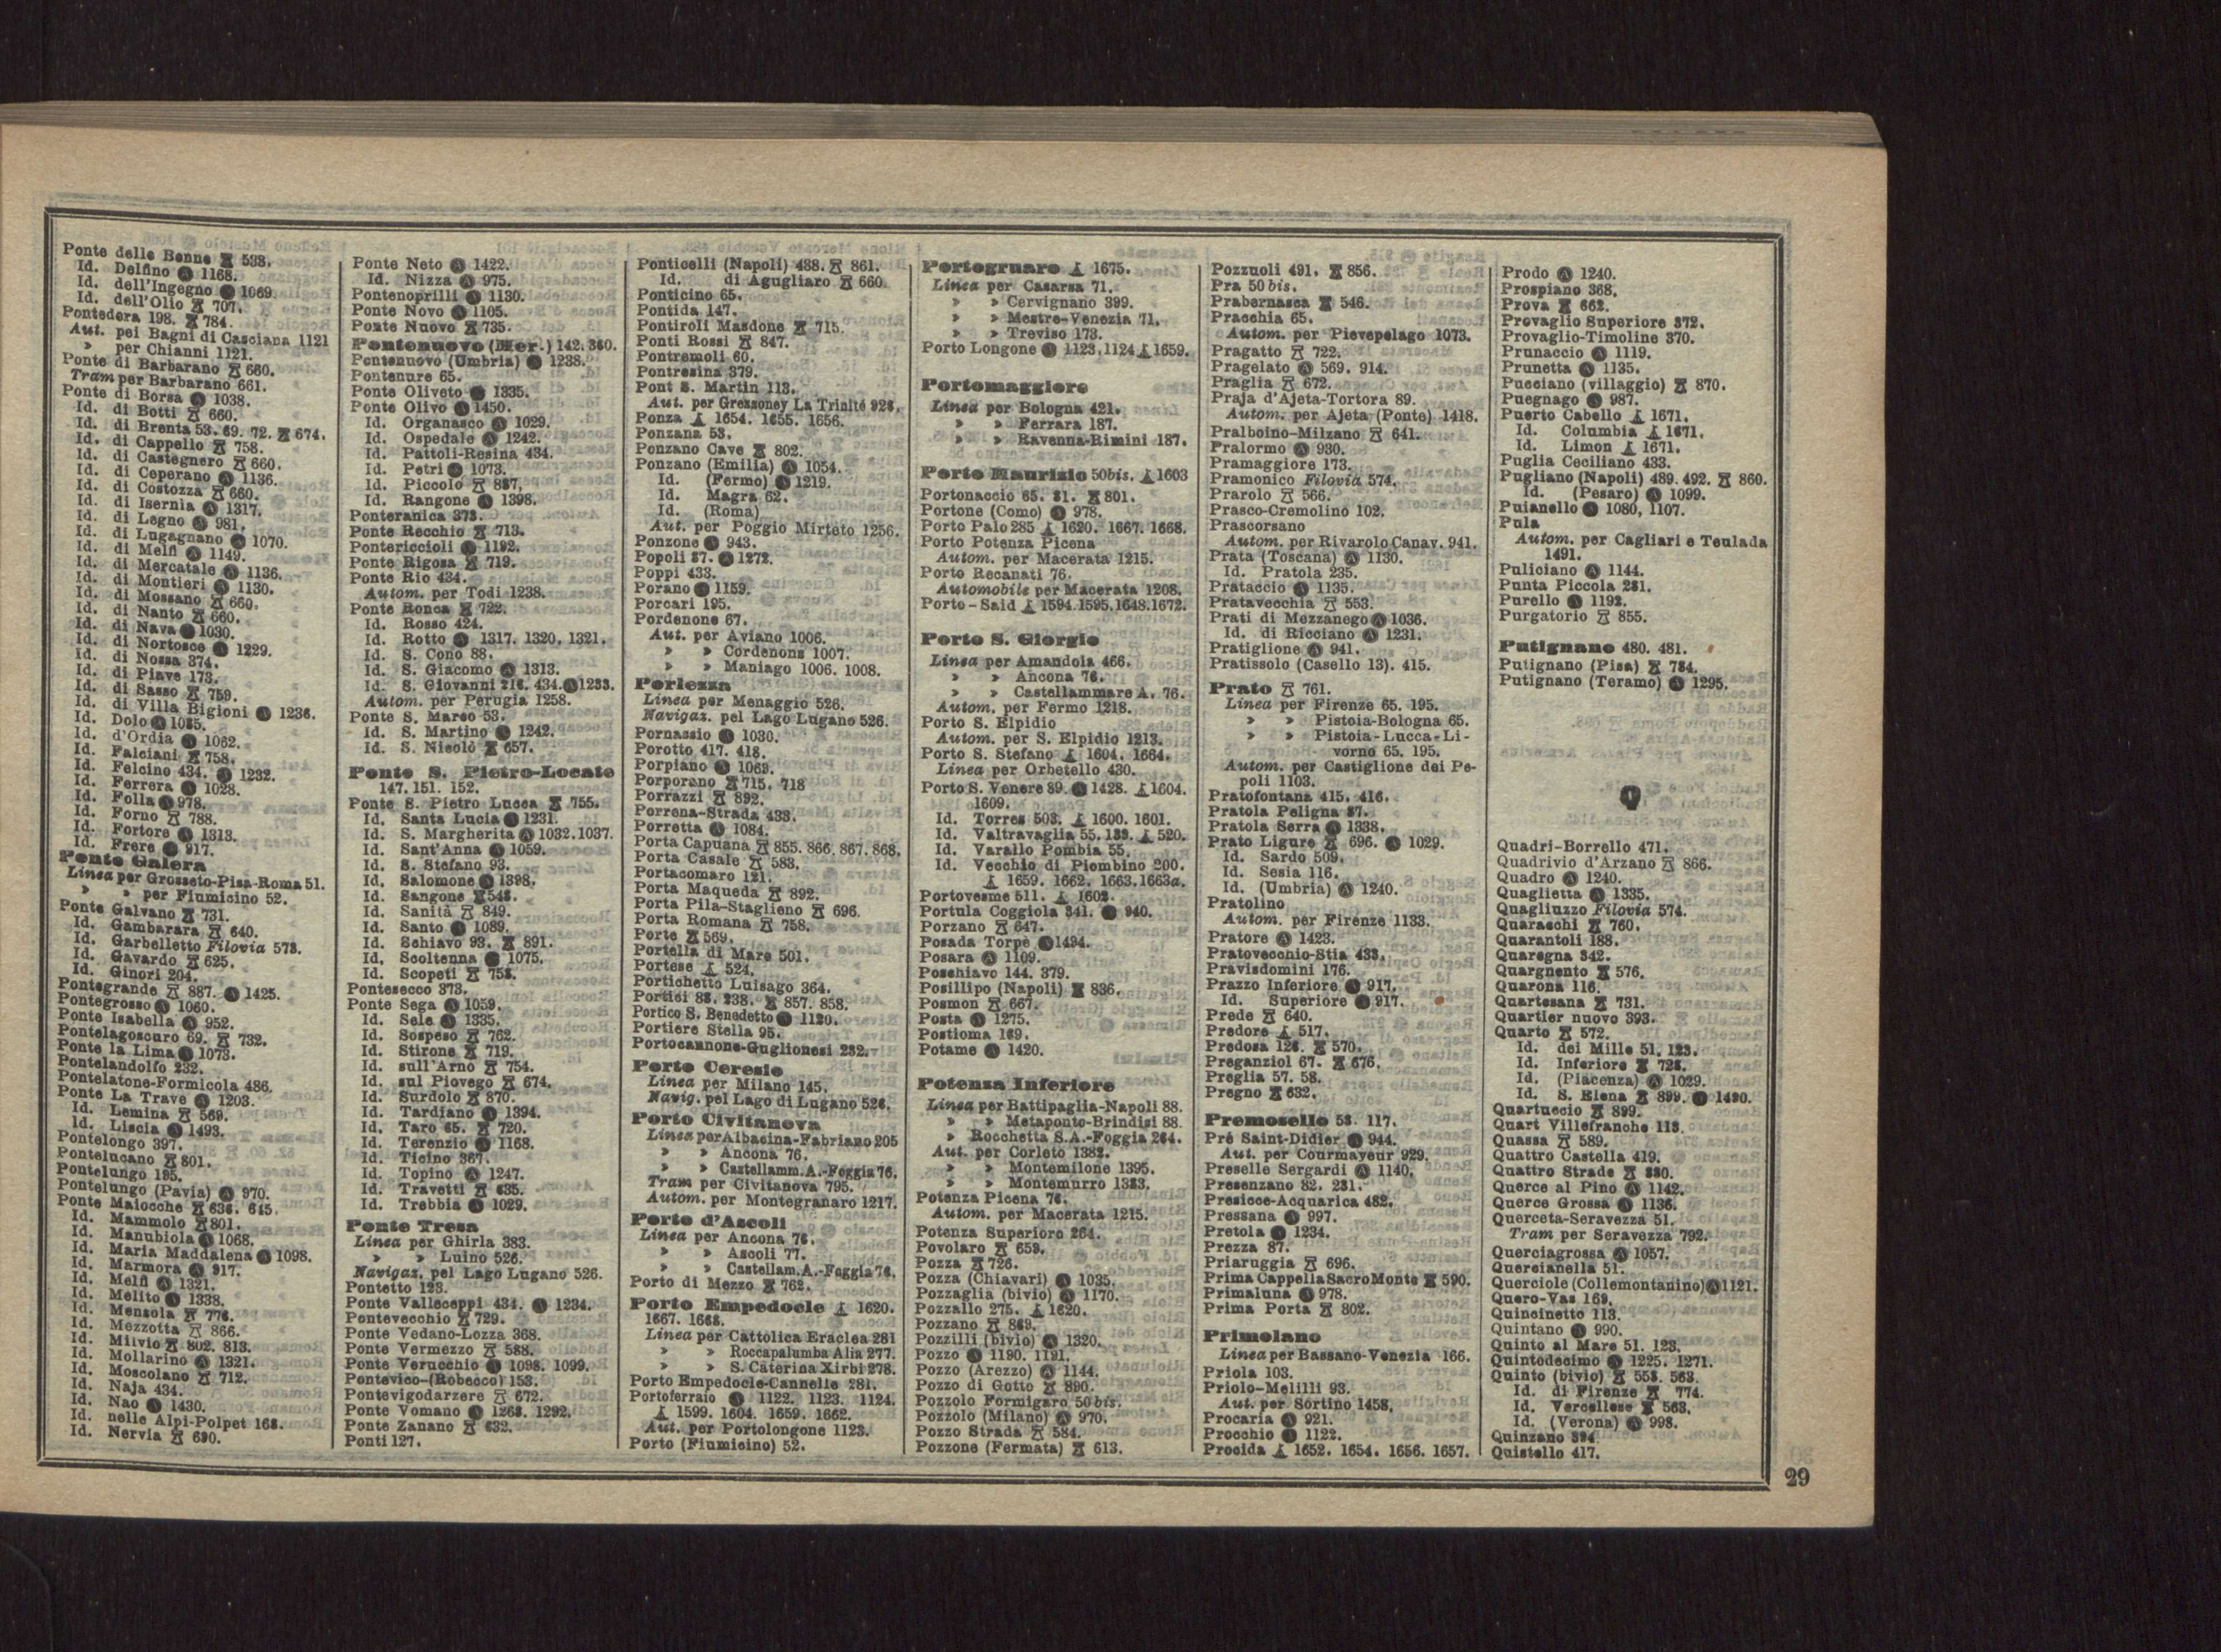 Ponte delle Benne 538.
Id. Delfino 1168.
Id. dell'Ingegno 1069.
Id. dell'Olio 707.
Pontedera 198. 784.
Aut. pei Bagni di Casciana 1121
» per Chianni 1121.
Ponte di Barbarano 660.
Tram per Barbarano 661.
Ponte di Borsa 1038.
Id. di Botti 660.
Id. di Brenta 53. 69. 72. 674.
Id. di Cappello 758.
Id. di Castegnero 660.
Id. di Ceperano 1136.
Id. di Costozza 660.
Id. di Isernia 1317.
Id. di Legno 981.
Id. di Lugagnano 1070.
Id. di Melfi 1149.
Id. di Mercatale 1136.
Id. di Montieri 1130.
Id. di Mossano 660.
Id. di Nanto 660.
Id. di Nava 1030.
Id. di Nortosce 1229.
Id. di Nossa 374.
Id. di Piave 173.
Id. di Sasso 759.
Id. di Villa Bigioni 1236.
Id. Dolo 1035.
Id. d'Ordia 1062.
Id. Falciani 758.
Id. Felcino 434. 1232.
Id. Ferrera 1028.
Id. Folla 978.
Id. Forno 788.
Id. Fortore 1313.
Id. Frere 917.
Ponte Galera
Linea per Grosseto-Pisa-Roma 51.
» » per Fiumicino 52.
Ponte Galvano 731.
Id. Gambarara 640.
Id. Garbelletto Filovia 573.
Id. Gavardo 625.
Id. Ginori 204.
Pontegrande 887. 1425.
Pontegrosso 1060.
Ponte Isabella 952.
Pontelagoscuro 69. 732.
Ponte la Lima 1073.
Pontelandolfo 232.
Pontelatone-Formicola 486.
Ponte La Trave 1203.
Id. Lemina 569.
Id. Liscia 1493.
Pontelongo 397.
Pontelucano 801.
Pontelungo 195.
Pontelungo (Pavia) 970.
Ponte Maiocche 636. 645.
Id. Mammolo 801.
Id. Manubiola 1068.
Id. Maria Maddalena 1098.
Id. Marmora 917.
Id. Melfi 1321.
Id. Melito 1338.
Id. Mensola 776.
Id. Mezzotta 866.
Id. Milvio 802. 813.
Id. Mollarino 1321.
Id. Moscolano 712.
Id. Naja 434.
Id. Nao 1430.
Id. nelle Alpi-Polpet 168.
Id. Nervia 690.
Ponte Neto 1422.
Id. Nizza 975.
Pontenoprilli 1130.
Ponte Novo 1105.
Ponte Nuovo 735.
Pontenuovo (Mer.) 142. 360.
Pontenuovo (Umbria) 1238.
Pontenure 65.
Ponte Oliveto 1335.
Ponte Olivo 1450.
Id. Organasco 1029.
Id. Ospedale 1242.
Id. Pattoli-Resina 434.
Id. Petri 1073.
Id. Piccolo 837.
Id. Rangone 1398.
Ponteranica 373.
Ponte Recchio 713.
Pontericcioli 1192.
Ponte Rigosa 719.
Ponte Rio 434.
Autom. per Todi 1238.
Ponte Ronca 722.
Id. Rosso 424.
Id. Rotto 1317. 1320. 1321.
Id. S. Cono 88.
Id. S. Giacomo 1313.
Id. S. Giovanni 216. 434. 1233.
Autom. per Perugia 1258.
Ponte S. Marco 53.
Id. S. Martino 1242.
Id. S. Nicolò 657.
Ponte S. Pietro-Locate
147. 151. 152.
Ponte S. Pietro Lucca 755.
Id. Santa Lucia 1231.
Id. S. Margherita 1032. 1037.
Id. Sant'Anna 1059.
Id. S. Stefano 93.
Id. Salomone 1398.
Id. Sangone 548.
Id. Sanità 849.
Id. Santo 1089.
Id. Schiavo 93. 891.
Id. Scoltenna 1075.
Id. Scopeti 758.
Pontesecco 373.
Ponte Sega 1059.
Id. Sele 1335.
Id. Sospeso 762.
Id. Stirone 719.
Id. sull'Arno 754.
Id. sul Piovego 674.
Id. Surdolo 870.
Id. Tardiano 1394.
Id. Taro 65. 720.
Id. Terenzio 1168.
Id. Ticino 367.
Id. Topino 1247.
Id. Travetti 635.
Id. Trebbia 1029.
Ponte Tresa
Linea per Ghirla 383.
» » Luino 526.
Navigaz. pel Lago Lugano 526.
Pontetto 123.
Ponte Valleceppi 434. 1234.
Pontevecchio 729.
Ponte Vedano-Lozza 368.
Ponte Vermezzo 588.
Ponte Verucchio 1098. 1099.
Pontevico-(Robecco) 153.
Pontevigodarzere 672.
Ponte Vomano 1268. 1292.
Ponte Zanano 632.
Ponti 127.
Ponticelli (Napoli) 488. 861.
Id. di Agugliaro 660.
Ponticino 65.
Pontida 147.
Pontiroli Masdone 715.
Ponti Rossi 847.
Pontremoli 60.
Pontresina 379.
Pont S. Martin 113.
Aut. per Gressoney La Trinité 928.
Ponza 1654. 1655. 1656.
Ponzana 53.
Ponzano Cave 802.
Ponzano (Emilia) 1054.
Id. (Fermo) 1219.
Id. Magra 62.
Id. (Roma)
Aut. per Poggio Mirteto 1256.
Ponzone 943.
Popoli 87. 1272.
Poppi 433.
Porano 1159.
Porcari 195.
Pordenone 67.
Aut. per Aviano 1006.
» » Cordenons 1007.
» » Maniago 1006. 1008.
Porlezza
Linea per Menaggio 526.
Navigaz. pel Lago Lugano 526.
Pornassio 1030.
Porotto 417. 418.
Porpiano 1069.
Porporano 715. 718
Porrazzi 892.
Porrena-Strada 433.
Porretta 1084.
Porta Capuana 855. 866. 867. 868.
Porta Casale 583.
Portacomaro 121.
Porta Maqueda 892.
Porta Pila-Staglieno 696.
Porta Romana 758.
Porte 569.
Portella di Mare 501.
Portese 524.
Portichetto Luisago 364.
Portici 88. 238. 857. 858.
Portico S. Benedetto 1120.
Portiere Stella 95.
Portocannone-Guglionesi 232.
Porto Ceresio
Linea per Milano 145.
Navig. pel Lago di Lugano 526.
Porto Civitanova
Linea per Albacina-Fabriano 205
» » Ancona 76.
» » Castellamm. A.-Foggia 76.
Tram per Civitanova 795.
Autom. per Montegranaro 1217.
Porto d'Ascoli
Linea per Ancona 76.
» » Ascoli 77.
» » Castellam. A.-Foggia 76.
Porto di Mezzo 762.
Porto Empedocle 1620.
1667. 1668.
Linea per Cattolica Eraclea 281
» » Roccapalumba Alia 277.
» » S. Caterina Xirbi 278.
Porto Empedocle-Cannelle 281.
Portoferraio 1122. 1123. 1124.
1599. 1604. 1659. 1662.
Aut. per Portolongone 1123.
Porto (Fiumicino) 52.
Portogruaro 1675.
Linea per Casarsa 71.
» » Cervignano 399.
» » Mestre-Venezia 71.
» » Treviso 173.
Porto Longone 1123. 1124 1659.
Portomaggiore
Linea per Bologna 421.
» » Ferrara 187.
» » Ravenna-Rimini 187.
Porto Maurizio 50bis. 1603
Portonaccio 65. 81. 801.
Portone (Como) 978.
Porto Palo 285 1620. 1667. 1668.
Porto Potenza Picena
Autom. per Macerata 1215.
Porto Recanati 76.
Automobile per Macerata 1208.
Porto-Said 1594. 1595. 1648. 1672.
Porto S. Giorgio
Linea per Amandola 466.
» » Ancona 76.
» » Castellammare A. 76.
Autom. per Fermo 1218.
Porto S. Elpidio
Autom. per S. Elpidio 1213.
Porto S. Stefano 1604. 1664.
Linea per Orbetello 430.
Porto S. Venere 89. 1428. 1604.
1609.
Id. Torres 503. 1600. 1601.
Id. Valtravaglia 55. 139. 520.
Id. Varallo Pombia 55.
Id. Vecchio di Piombino 200.
1659. 1662. 1663. 1663a.
Portovesme 511. 1602.
Portula Coggiola 341. 940.
Porzano 647.
Posada Torpè 1494.
Posara 1109.
Poschiavo 144. 379.
Posillipo (Napoli) 836.
Posmon 667.
Posta 1275.
Postioma 169.
Potame 1420.
Potenza Inferiore
Linea per Battipaglia-Napoli 88.
» » Metaponto-Brindisi 88.
» Rocchetta S.A.-Foggia 264.
Aut. per Corleto 1382.
» » Montemilone 1395.
» » Montemurro 1383.
Potenza Picena 76.
Autom. per Macerata 1215.
Potenza Superiore 264.
Povolaro 659.
Pozza 726.
Pozza (Chiavari) 1035.
Pozzaglia (bivio) 1170.
Pozzallo 275. 1620.
Pozzano 869.
Pozzilli (bivio) 1320.
Pozzo 1190. 1191.
Pozzo (Arezzo) 1144.
Pozzo di Gotto 890.
Pozzolo Formigaro 50bis.
Pozzolo (Milano) 970.
Pozzo Strada 584.
Pozzone (Fermata) 613.
Pozzuoli 491. 856.
Pra 50 bis.
Prabernasca 546.
Pracchia 65.
Autom. per Pievepelago 1073.
Pragatto 722.
Pragelato 569. 914.
Praglia 672.
Praja d'Ajeta-Tortora 89.
Autom. per Ajeta (Ponte) 1418.
Pralboino-Milzano 641.
Pralormo 930.
Pramaggiore 173.
Pramonico Filovia 574.
Prarolo 566.
Prasco-Cremolino 102.
Prascorsano
Autom. per Rivarolo Canav. 941.
Prata (Toscana) 1130.
Id. Pratola 235.
Prataccio 1135.
Pratavecchia 553.
Prati di Mezzanego 1036.
Id. di Ricciano 1231.
Pratiglione 941.
Pratissolo (Casello 13). 415.
Prato 761.
Linea per Firenze 65. 195.
» » Pistoia-Bologna 65.
» » Pistoia-Lucca-Li-
vorno 65. 195.
Autom. per Castiglione dei Pe-
poli 1103.
Pratofontana 415. 416.
Pratola Peligna 87.
Pratola Serra 1338.
Prato Ligure 696. 1029.
Id. Sardo 509.
Id. Sesia 116.
Id. (Umbria) 1240.
Pratolino
Autom. per Firenze 1133.
Pratore 1423.
Pratovecchio-Stia 433.
Pravisdomini 176.
Prazzo Inferiore 917.
Id. Superiore 917.
Prede 640.
Predore 517.
Predosa 126. 570.
Preganziol 67. 676.
Preglia 57. 58.
Pregno 632.
Premosello 53. 117.
Pré Saint-Didier 944.
Aut. per Courmayeur 929.
Preselle Sergardi 1140.
Presenzano 82. 231.
Presicce-Acquarica 482.
Pressana 997.
Pretola 1234.
Prezza 87.
Priaruggia 696.
Prima Cappella Sacro Monte 590.
Primaluna 978.
Prima Porta 802.
Primolano
Linea per Bassano-Venezia 166.
Priola 103.
Priolo-Melilli 93.
Aut. per Sortino 1458.
Procaria 921.
Procchio 1122.
Procida 1652. 1654. 1656. 1657.
Prodo 1240.
Prospiano 368.
Prova 662.
Provaglio Superiore 372.
Provaglio-Timoline 370.
Prunaccio 1119.
Prunetta 1135.
Pucciano (villaggio) 870.
Puegnago 987.
Puerto Cabello 1671.
Id. Columbia 1671.
Id. Limon 1671.
Puglia Ceciliano 433.
Pugliano (Napoli) 489. 492. 860.
Id. (Pesaro) 1099.
Puianello 1080, 1107.
Pula
Autom. per Cagliari e Teulada
1491.
Puliciano 1144.
Punta Piccola 281.
Purello 1192.
Purgatorio 855.
Putignano 480. 481.
Putignano (Pisa) 784.
Putignano (Teramo) 1295.
Q
Quadri-Borrello 471.
Quadrivio d'Arzano 866.
Quadro 1240.
Quaglietta 1335.
Quagliuzzo Filovia 574.
Quaracchi 760.
Quarantoli 188.
Quaregna 342.
Quargnento 576.
Quarona 116.
Quartesana 731.
Quartier nuovo 393.
Quarto 572.
Id. dei Mille 51. 123.
Id. Inferiore 728.
Id. (Piacenza) 1029.
Id. S. Elena 899. 1490.
Quartuccio 899.
Quart Villefranche 113.
Quassa 589.
Quattro Castella 419.
Quattro Strade 880.
Querce al Pino 1142.
Querce Grossa 1136.
Querceta-Seravezza 51.
Tram per Seravezza 792.
Querciagrossa 1057.
Quercianella 51.
Querciole (Collemontanino) 1121.
Quero-Vas 169.
Quincinetto 113.
Quintano 990.
Quinto al Mare 51. 123.
Quintodecimo 1225. 1271.
Quinto (bivio) 553. 563.
Id. di Firenze 774.
Id. Vercellese 563.
Id. (Verona) 998.
Quinzano 394.
Quistello 417.
29